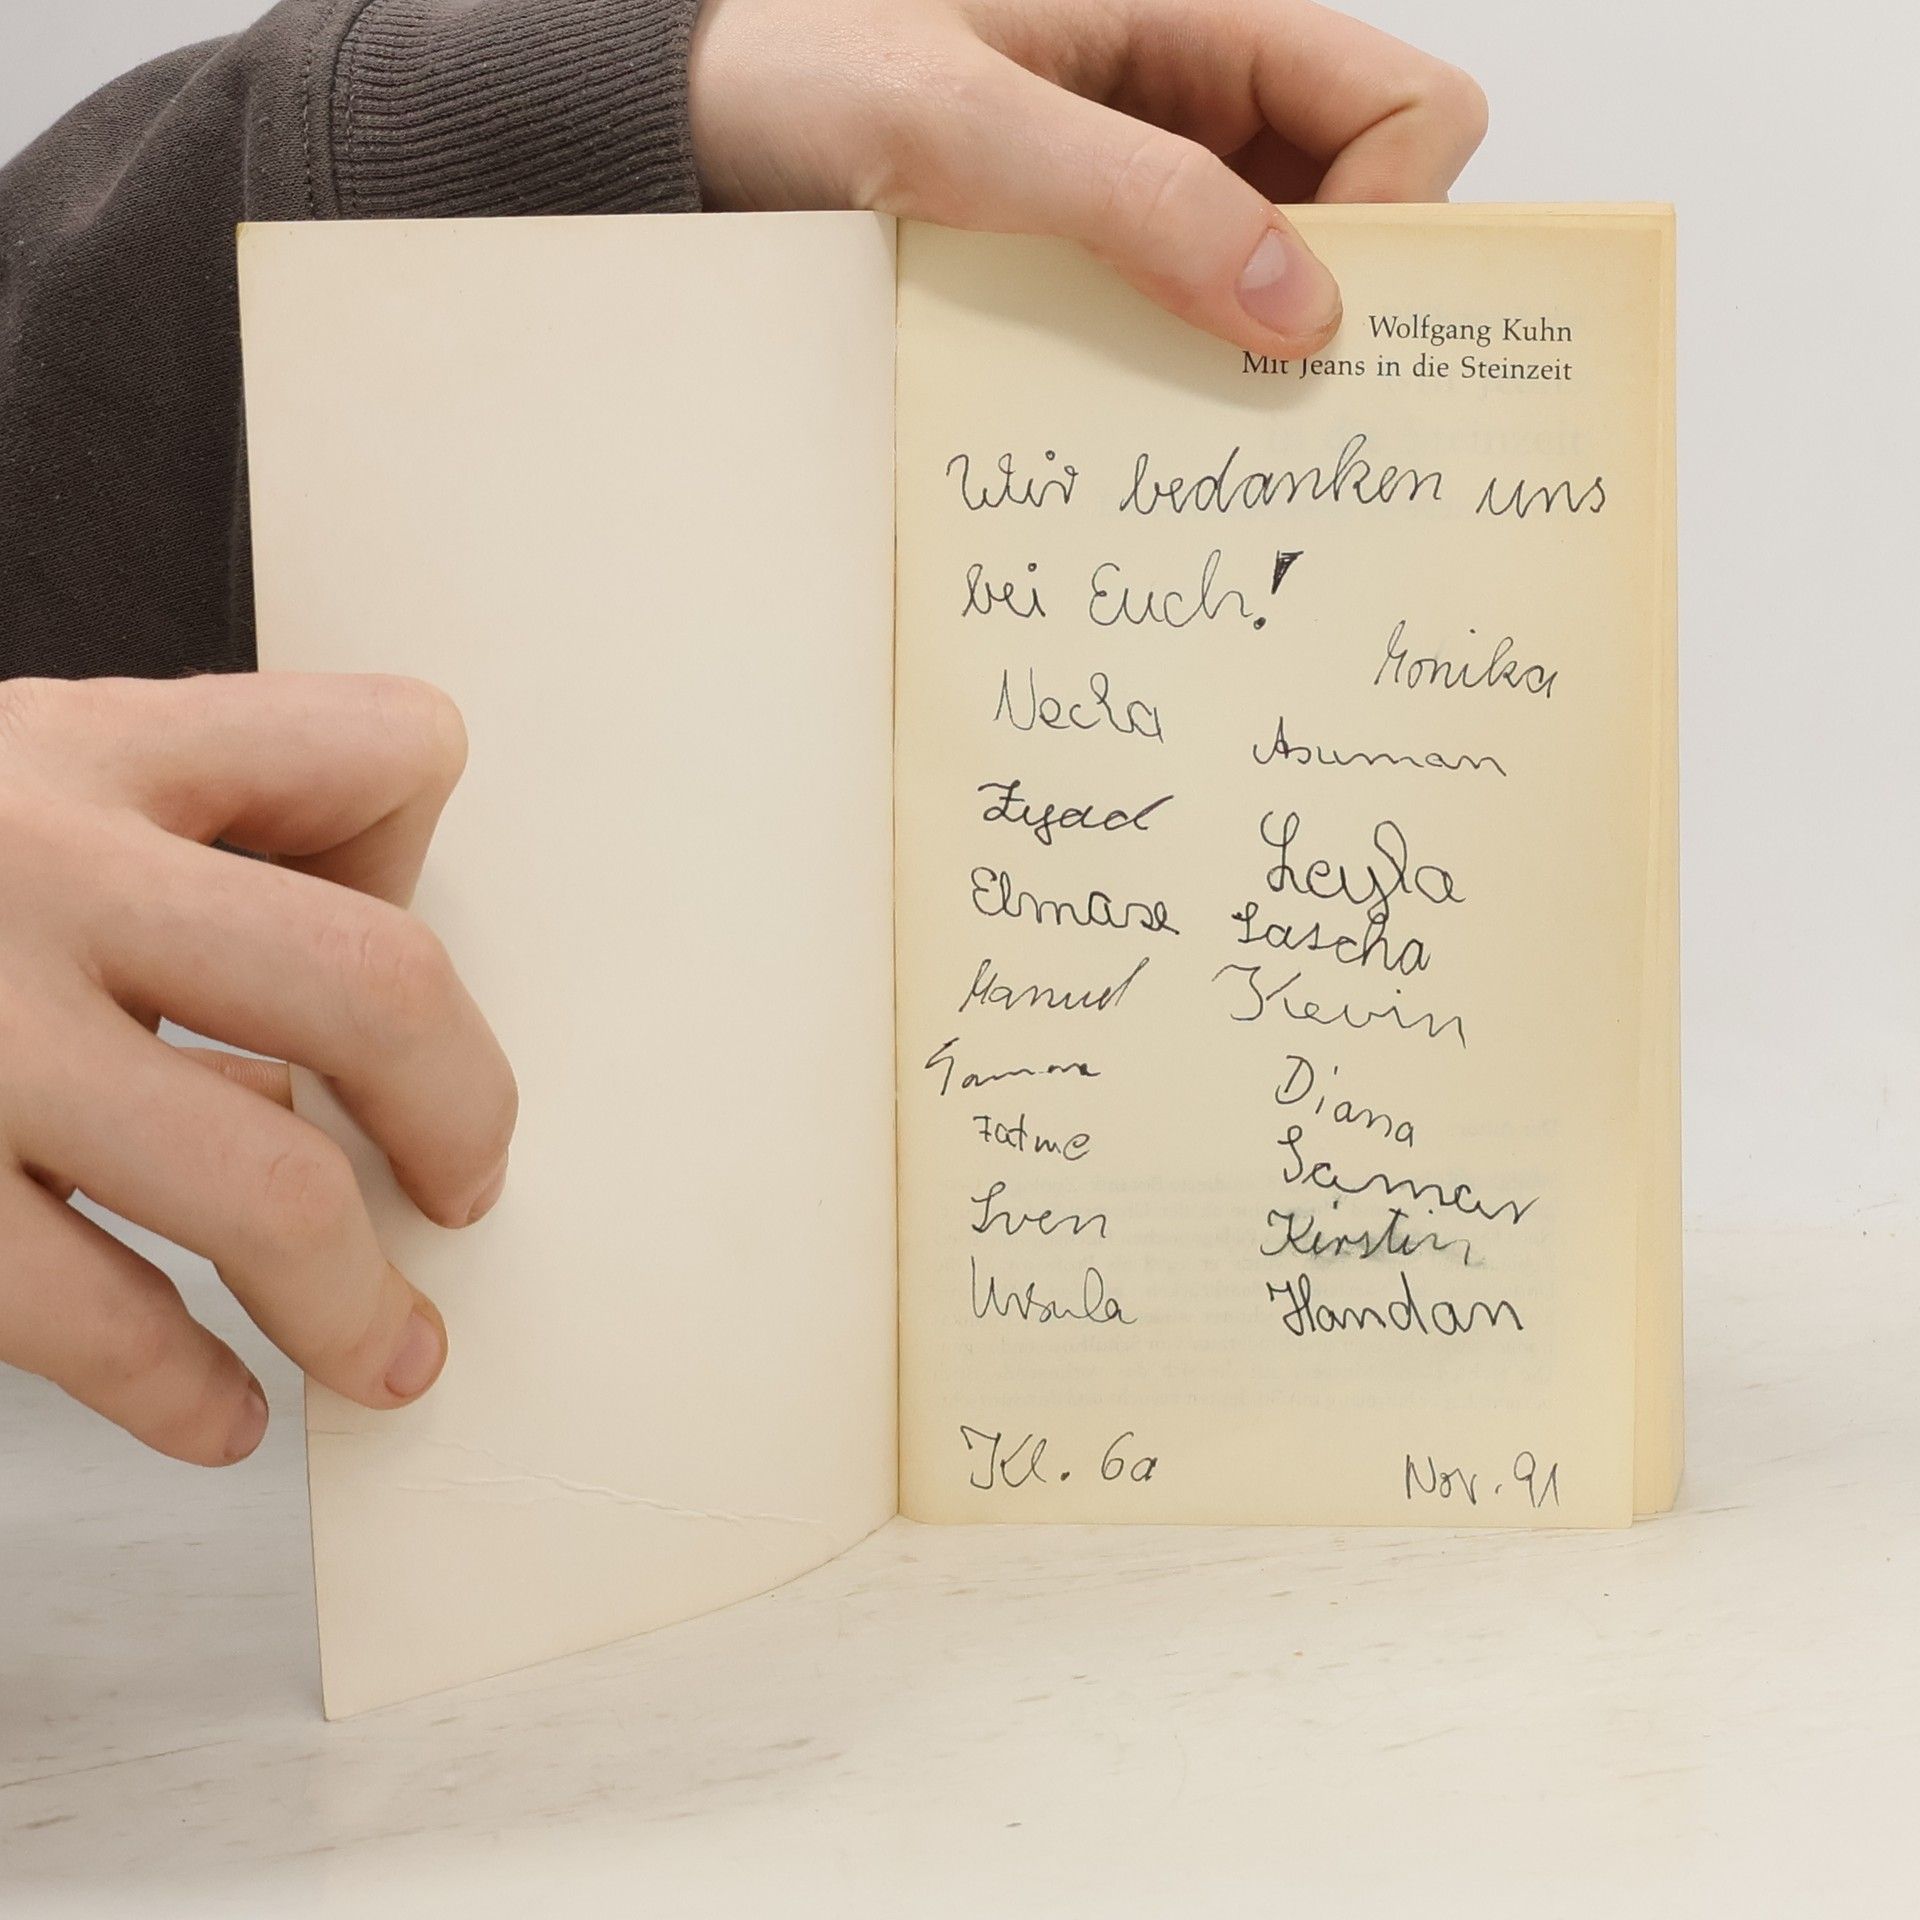 Wolfgang Kuhn
Mit Jeans in die Steinzeit
Wir bedanken uns
bei Euch!
Monika
Necla
Asuman
Zyad
Leyla
Elmase
Sascha
Manuel
Kevin
Diana
Fatme
Samar
Sven
Kirstin
Ursula
Handan
Kl. 6a
Nov. 91